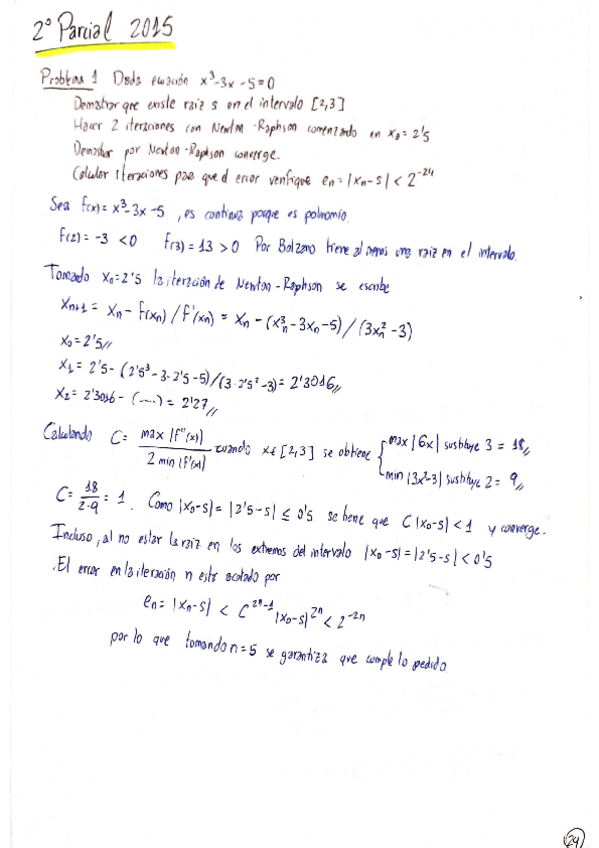 2º Parcial 2015
Problema 1 Dada ecuación x³-3x-5=0
Demostrar que existe raiz s en el intervalo [2,3]
Hacer 2 iteraciones con Newton-Raphson comenzando en x₀=2'5
Demostrar por Newton-Raphson converge.
Calcular iteraciones para que el error verifique en=|xn-s|<2⁻²⁴
Sea f(x)=x³-3x-5, es continua porque es polinomio.
f(2)=-3<0 f(3)=13>0 Por Bolzano tiene al menos una raiz en el intervalo.
Tomando x₀=2'5 la iteración de Newton-Raphson se escribe
xn+1 = xn - f(xn)/f'(xn) = xn - (xn³-3xn-5)/(3xn²-3)
x₀=2'5//
x₁=2'5-(2'5³-3·2'5-5)/(3·2'5²-3)=2'3016//
x₂=2'3016-(.....)=2'27//
Calculando C= max |f''(x)| / 2 min |f'(x)| cuando x∈[2,3] se obtiene { max |6x| sustituye 3 = 18//
min |3x²-3| sustituye 2 = 9//
C= 18/2·9 = 1. Como |x₀-s|=|2'5-s|≤0'5 se tiene que C|x₀-s|<1 y converge.
Incluso, al no estar la raiz en los extremos del intervalo |x₀-s|=|2'5-s|<0'5
.El error en la iteración n está acotado por
en=|xn-s|<C^2ⁿ-1 |x₀-s|^2ⁿ<2^-2n
por lo que tomando n=5 se garantiza que cumple lo pedido
29